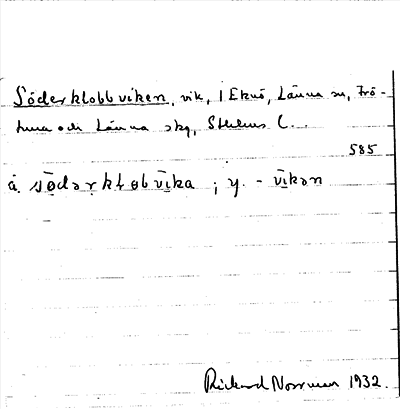 Söderklobbviken, vik, i Eknö, Länna sn, Frö-
tuna och Länna skg, Sthlms l.
585
å. sö̱dərklobvī̱ka ; y. -vī̱kən
Rickard Norrman 1932.